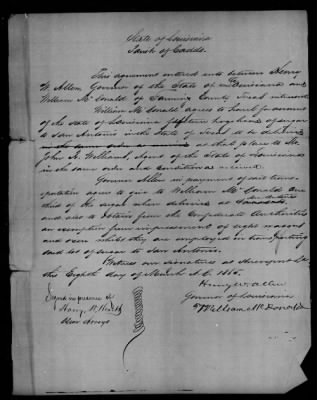 State of Louisiana
Parish of Caddo.
This agreement entered into between Henry
W. Allen Governor of the State of Louisiana and
William McDonald of County Texas witnesseth
William McDonald agrees to haul for account
of the state of Louisiana fifteen hogsheads of sugar
to San Antonio in the State of Texas to be delivered
in the same order as received at that place to Mr
John H. Williams, Agent of the State of Louisiana
in the same order and condition as received.
Governor Allen in payment of said trans-
portation agrees to give to William McDonald one
third of the sugar when delivered at San Antonio
and also to obtain from the Confederate Authorities
an exemption from impressment of eight wagons
and oxen whilst they are employed in transporting
said lot of sugar to San Antonio.
Witness our signatures at Shreveport La
this Eighth day of March A.D. 1865.
Signed in presence of
Henry W. Allen
Governor of Louisiana
William McDonald